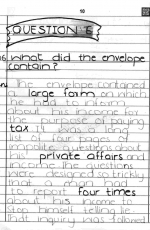 18
QUESTION 6
What did the envelope
contain?
The envelope contained
a large form on which
he had to inform
about his income for
the purpose of paying
tax. It was a long
list of four pages of
impolite questions about
his private affairs and
income. The questions
were designed so trickly
that a man had
to report four times
about his income to
stop himself telling lie.
that inquiry was followed